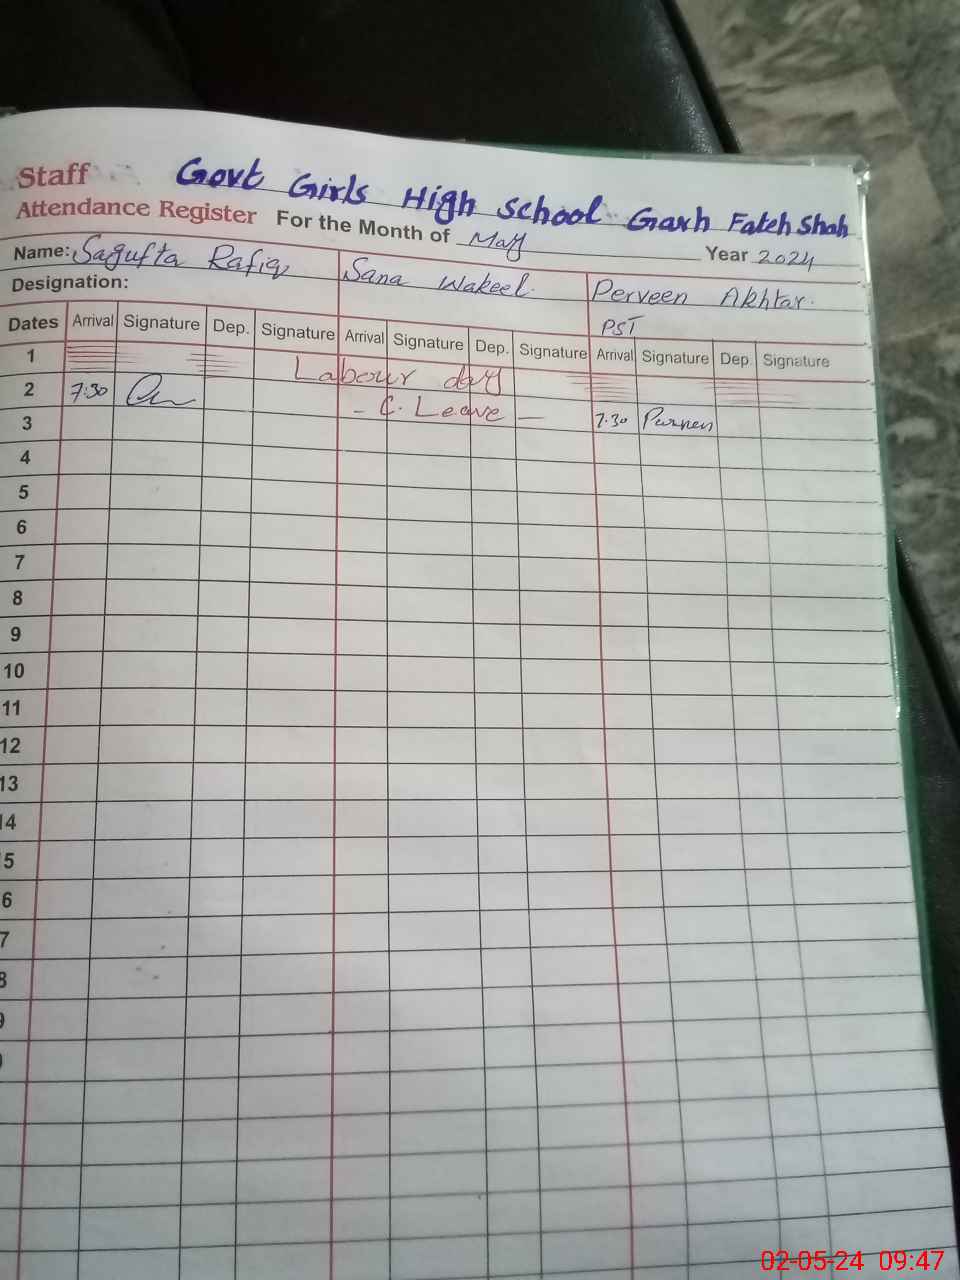 Staff Govt Girls High school Garh Fateh Shah
Attendance Register For the Month of May Year 2024
Name: Sagufta Rafiq Sana Wakeel. Perveen Akhtar.
Designation: PST
Dates Arrival Signature Dep. Signature Arrival Signature Dep. Signature Arrival Signature Dep. Signature
1 Labour day
2 7:30 - C. Leave - 7.30 Parveen
3
4
5
6
7
8
9
10
11
12
13
14
5
6
7
8
9
02-05-24 09:47